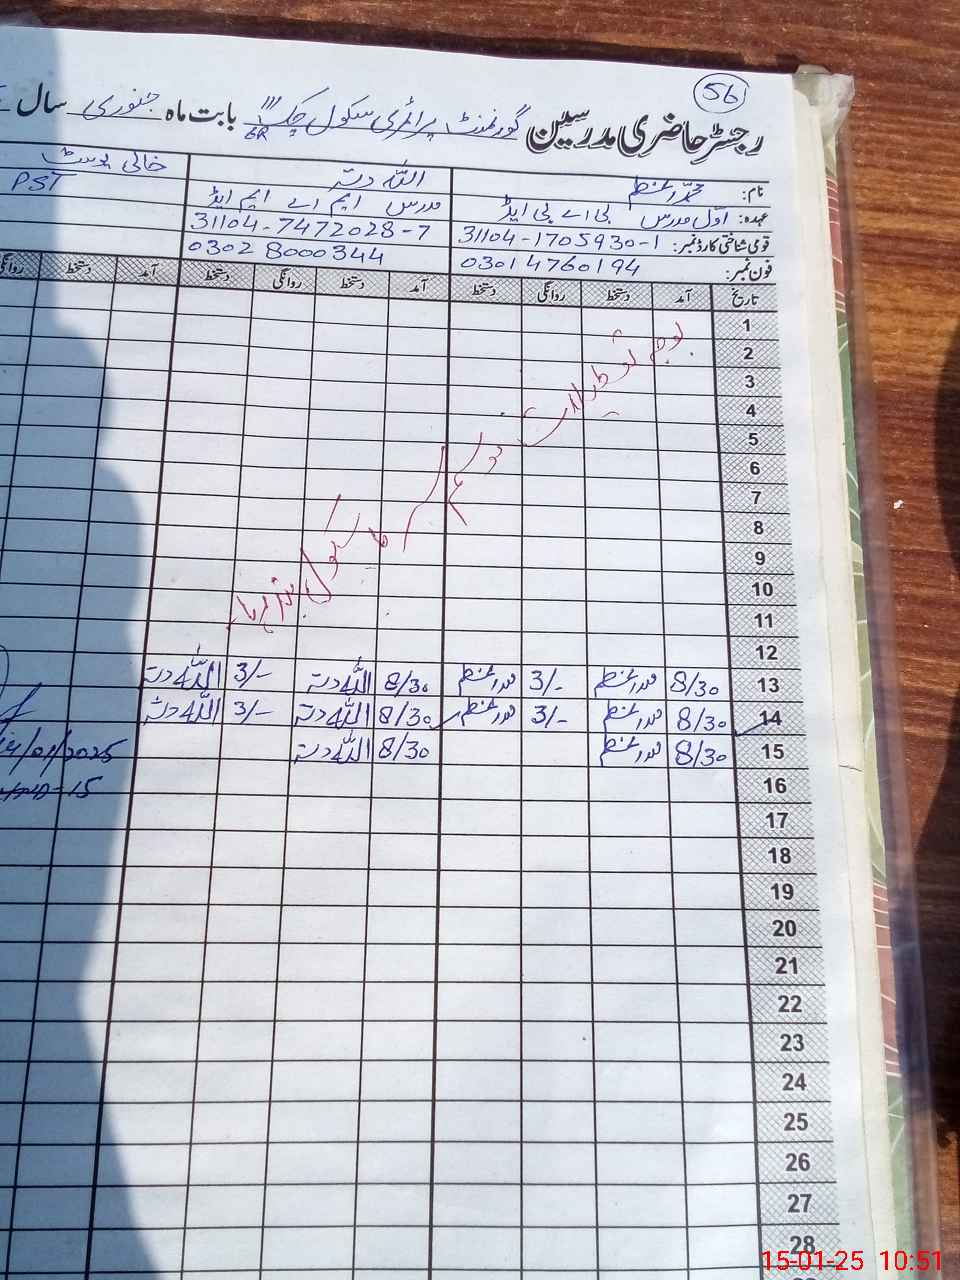 56
رجسٹر حاضری مدرسین گورنمنٹ پرائمری سکول چک 111/6R بابت ماہ جنوری سال
نام: محمد اعظم اللہ دتہ خالی پوسٹ
عہدہ: اول مدرس بی اے بی ایڈ مدرس ایم اے ایم ایڈ PST
قومی شناختی کارڈ نمبر: 31104-1705930-1 31104-7472028-7
فون نمبر: 03014760194 03028000344
تاریخ آمد دستخط روانگی دستخط آمد دستخط روانگی دستخط آمد دستخط روانگی
1
2
3
4
5
6
7
8
9
10
11
12
بوجہ تعطیلات موسم سرما سکول بند رہا
13 8/30 محمد اعظم 3/- محمد اعظم 8/30 اللہ دتہ 3/- اللہ دتہ
14 8/30 محمد اعظم 3/- محمد اعظم 8/30 اللہ دتہ 3/- اللہ دتہ
15 8/30 محمد اعظم 8/30 اللہ دتہ
14/01/2025
16
17
18
19
20
21
22
23
24
25
26
27
28
15-01-25 10:51